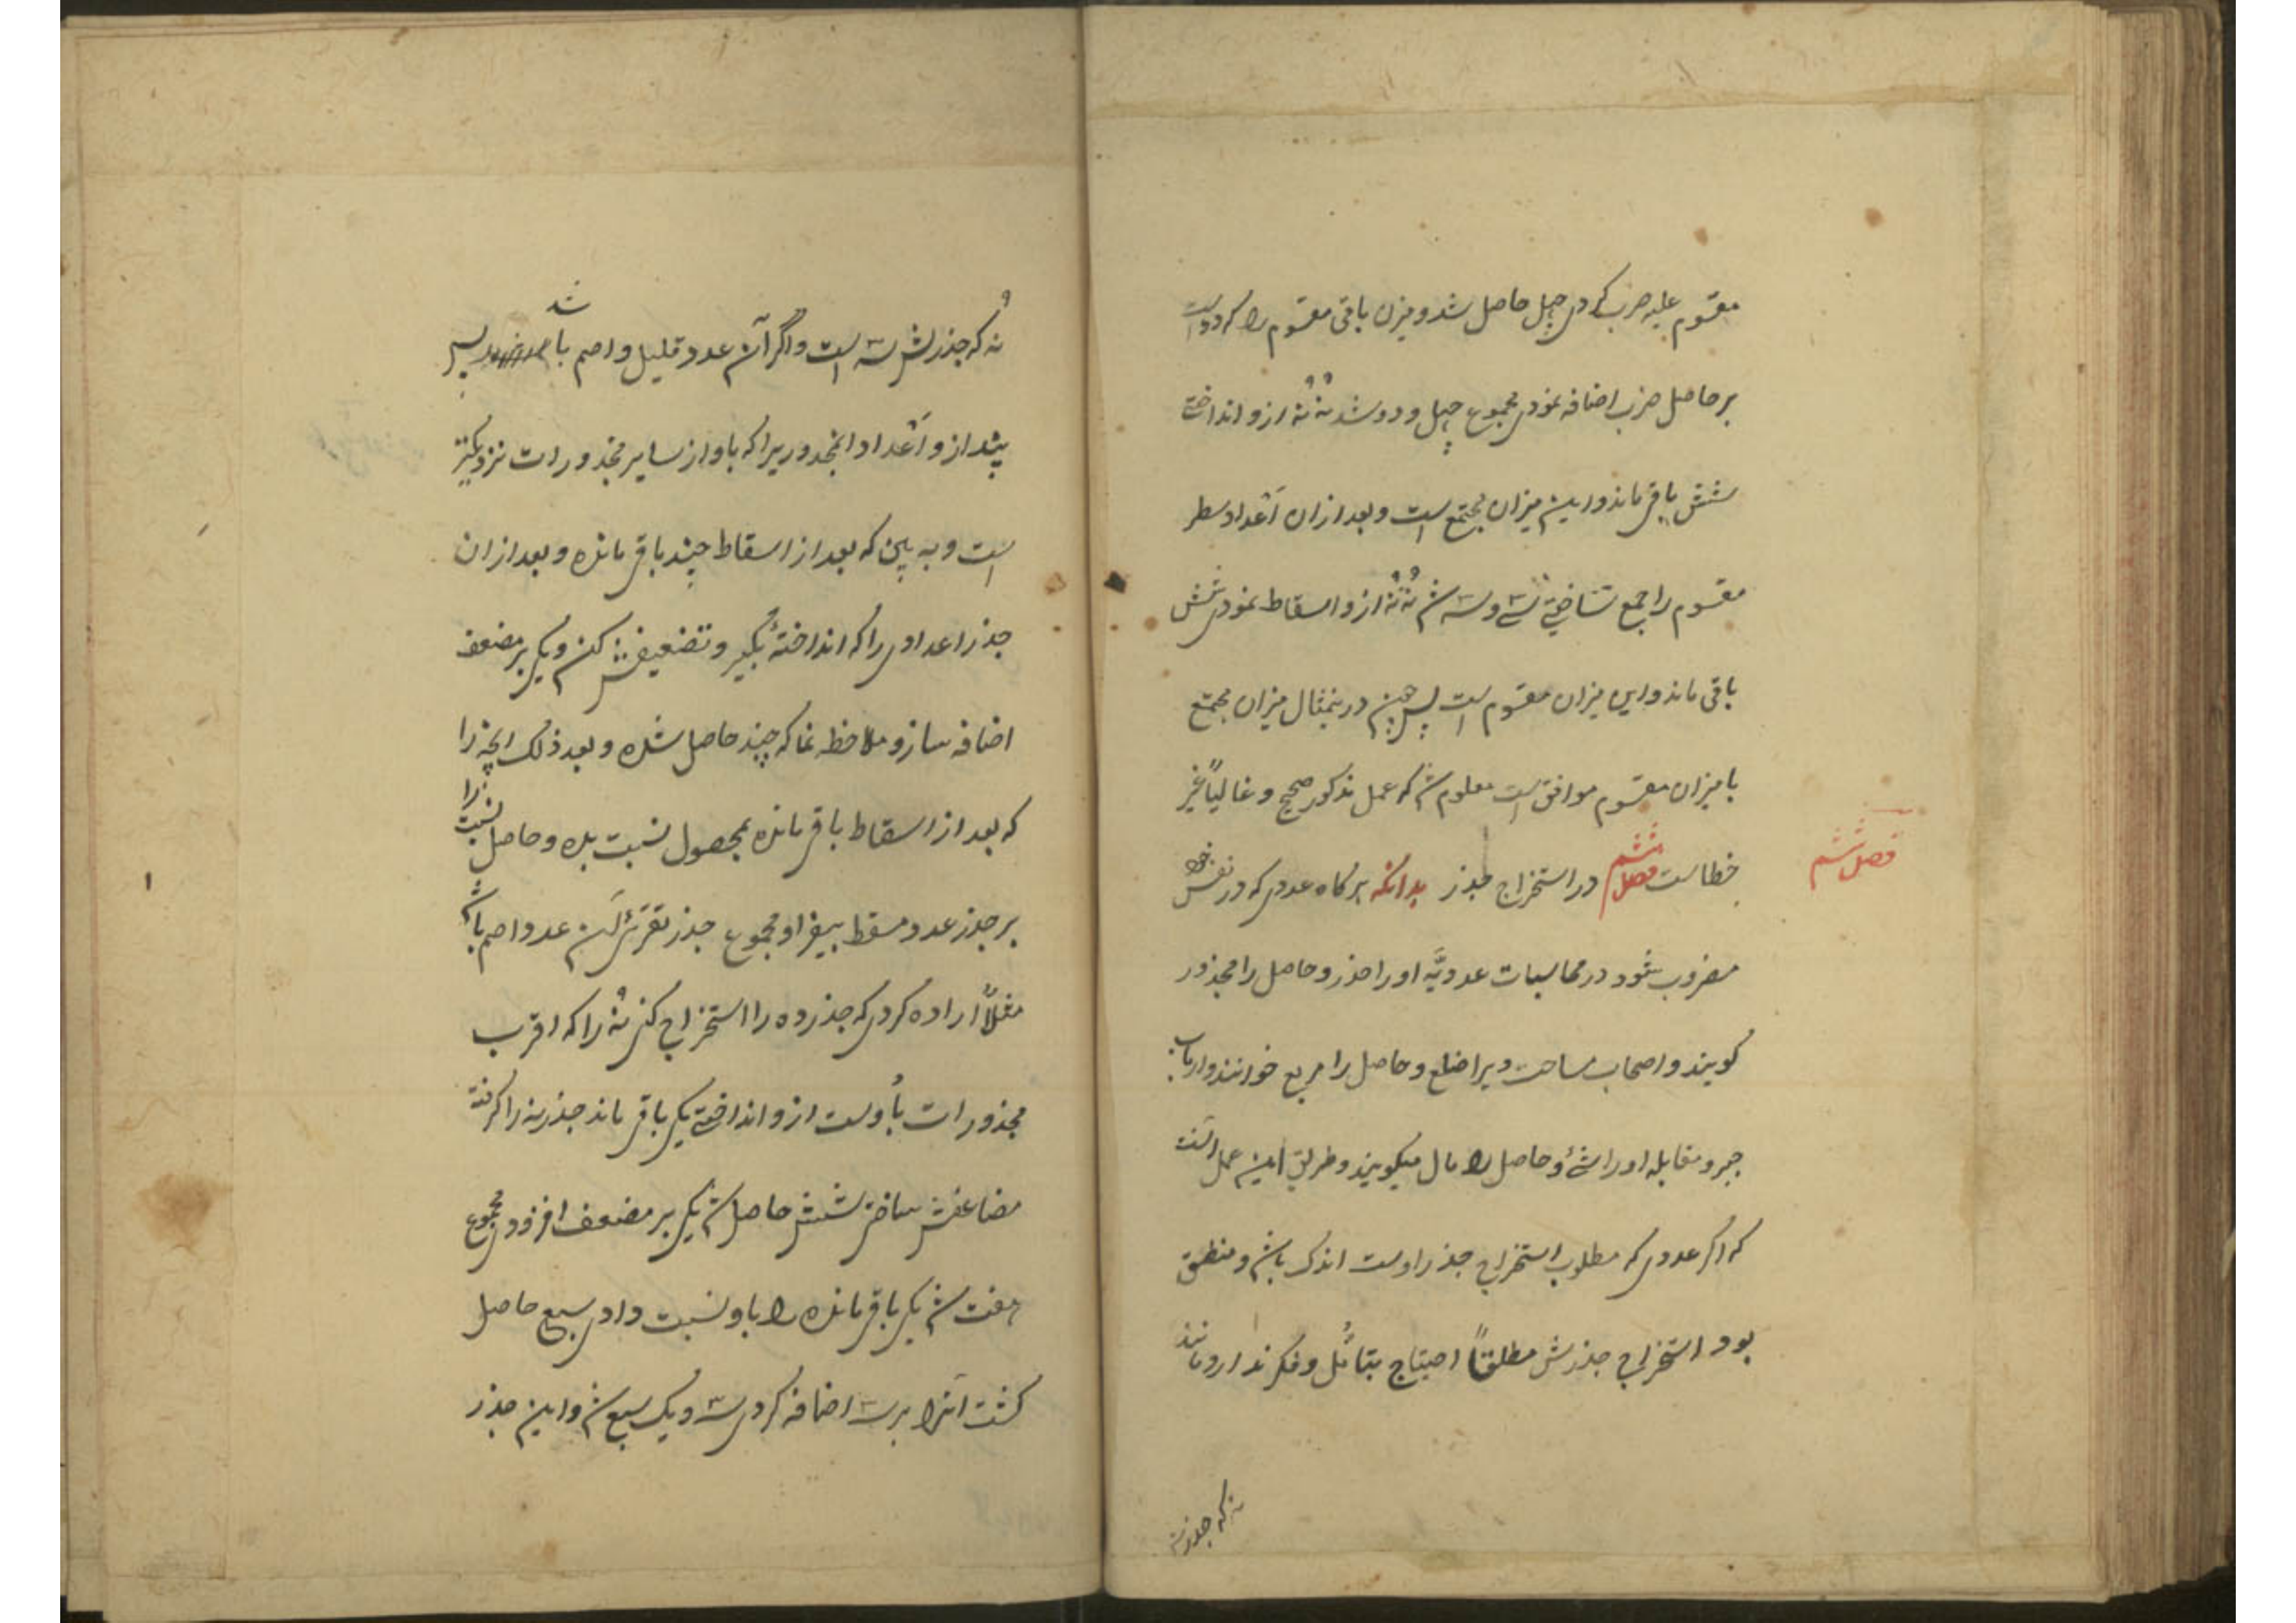 مقسوم علیه ضرب کردی چهل حاصل شد و میزن باقی مقسوم را که دو است
بر حاصل ضرب اضافه نمودی مجموع چهل و دو شد نُه نُه ازو انداختی
شش باقی ماند و این میزان مجتمع است و بعد از ان اَعْداد سطر
مقسوم را جمع ساختی سی و سه شد نُه نُه ازو اسقاط نمودی شش
باقی ماند و این میزان مقسوم است پس چون درینمثال میزان مجتمع
با میزان مقسوم موافق است معلوم شد که عمل مذکور صحیح و غالباً غیر
خطاست فصل ششم در استخراج جذر بدانکه هر گاه عددی که در نفس خود
فصل ششم
مضروب شود در محاسبات عددیَّه او را جذر و حاصل را مجذور
گویند و اصحاب مساحت ویرا ضلع و حاصل را مربع خوانند و ارباب
جبر و مقابله او را شئ و حاصل را مال میگویند و طریق این عمل آنست
که اگر عددی که مطلوب استخراج جذر اوست اندک باشد و منطق
بود استخراج جذرش مطلقاً احتیاج بتامُّل و فکر ندارد مانند
نه که جذرش
نُه که جذرش سه است و اگر آن عدد قلیل و اصم باشد پس
بینداز و اَعْداد المجذوریرا که باو از سایر مجذورات نزدیکتر
است و به بین که بعد از اسقاط چند باقی مانده و بعد از ان
جذر اعدادی را که انداختهٔ بگیر و تضعیفش کن و یکی بر مضعف
اضافه ساز و ملاحظه نما که چند حاصل شده و بعد ذلک انچه را
که بعد از اسقاط باقی مانده بمحصول نسبت بده و حاصل نسبت را
بر جذر عدد مسقط بیفزا و مجموع جذر تقریبی آن عدد اصم باشد
مثلاً اراده کردی که جذر ده را استخراج کنی نُه را که اقرب
مجذورات باُوست ازو انداختی یکی باقی ماند جذر نه را گرفته
مضاعفش ساختی شش حاصل شد یکی بر مضعف افزودی مجموع
هفت شد یکی باقی مانده را باو نسبت دادی سبع حاصل
گشت آنرا بر سه اضافه کردی سه و یک سبع شد و این جذر